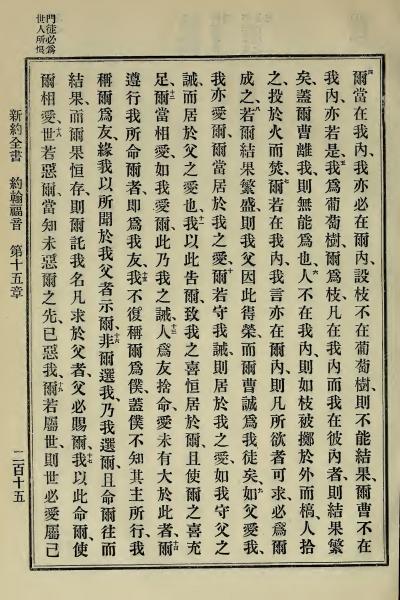 門徒必爲
世人所恨
四爾當在我內、我亦必在爾內、設枝不在葡萄樹、則不能結果、爾曹不在
我內、亦若是、五我爲葡萄樹、爾爲枝、凡在我內、而我在彼內者、則結果繁
矣、蓋爾曹離我、則無能爲也、六人不在我內、則如枝被擲於外而槁、人拾
之投於火而焚、七爾若在我內、我言亦在爾內、則凡所欲者可求、必爲爾
成之、八若爾結果繁盛、則我父因此得榮、而爾曹誠爲我徒矣、九如父愛我、
我亦愛爾、爾當居於我之愛、十爾若守我誡、則居於我之愛、如我守父之
誡、而居於父之愛也、十一我以此告爾、致我之喜恒居於爾、且使爾之喜充
足、十二爾當相愛、如我愛爾、此乃我之誡、十三人爲友捨命、愛未有大於此者、十四爾
遵行我所命爾者、即爲我友、十五我不復稱爾爲僕、蓋僕不知其主所行、我
稱爾爲友、緣我以所聞於我父者示爾、十六非爾選我、乃我選爾、且命爾往而
結果、而爾果恒存、則爾託我名凡求於父者、父必賜爾、十七我以此命爾、使
爾相愛、十八世若惡爾、當知未惡爾之先、已惡我、十九爾若屬世、則世必愛屬己
新約全書 約翰福音 第十五章 二百十五